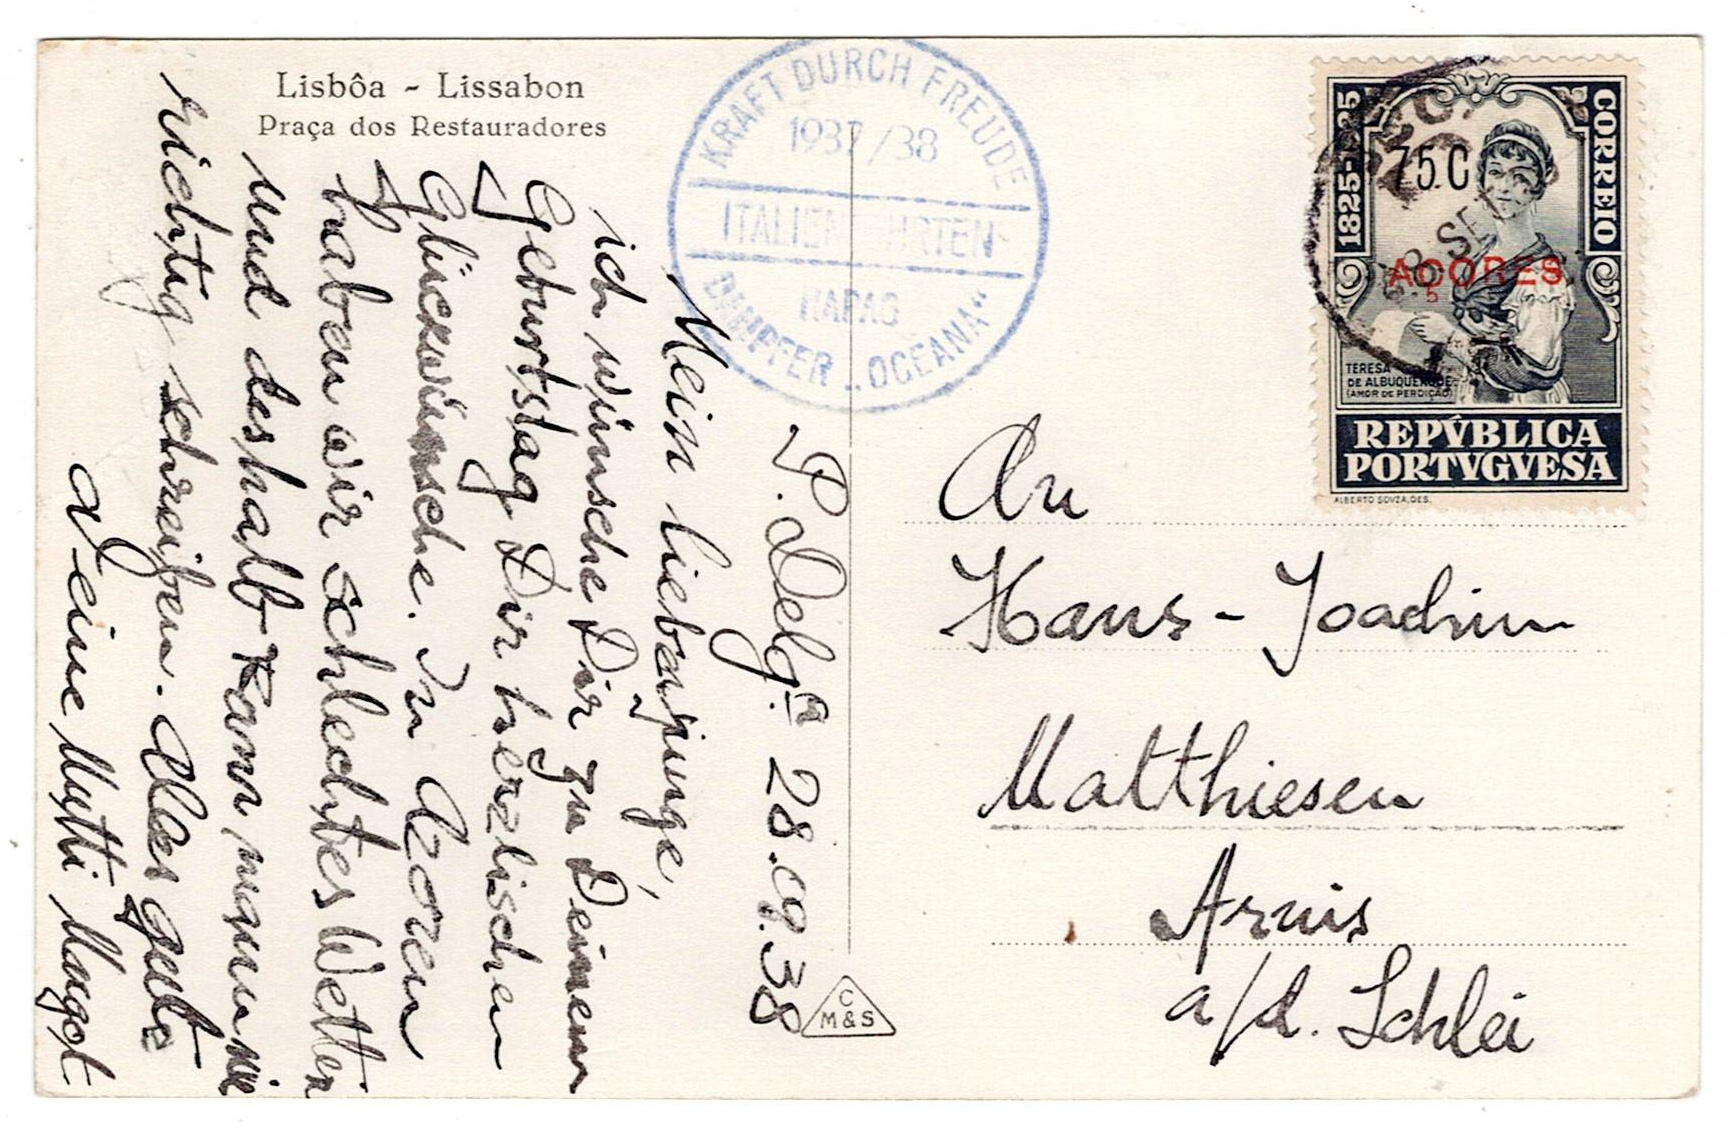 Lisbôa - Lissabon
Praça dos Restauradores
KRAFT DURCH FREUDE
1937/38
ITALIENFAHRTEN
HAPAG
DAMPFER „OCEANA“
P. Delg.ª 28.09.38
Mein lieber Junge,
ich wünsche Dir zu Deinem
Geburtstag Dir herzlischen
Glückwünsche. In Azoren
haben wir schlechtes Wetter
und deshalb kann man nie
richtig schreiben. Alles gute
Deine Mutti Margot
C
M&S
1825-1925
CORREIO
75C
AÇORES
TERESA
DE ALBUQUERQUE
(AMOR DE PERDIÇÃO)
REPVBLICA
PORTVGVESA
ALBERTO SOVZA, DES.
28 SET
An
Hans-Joachim
Matthiesen
Arnis
a/d. Schlei